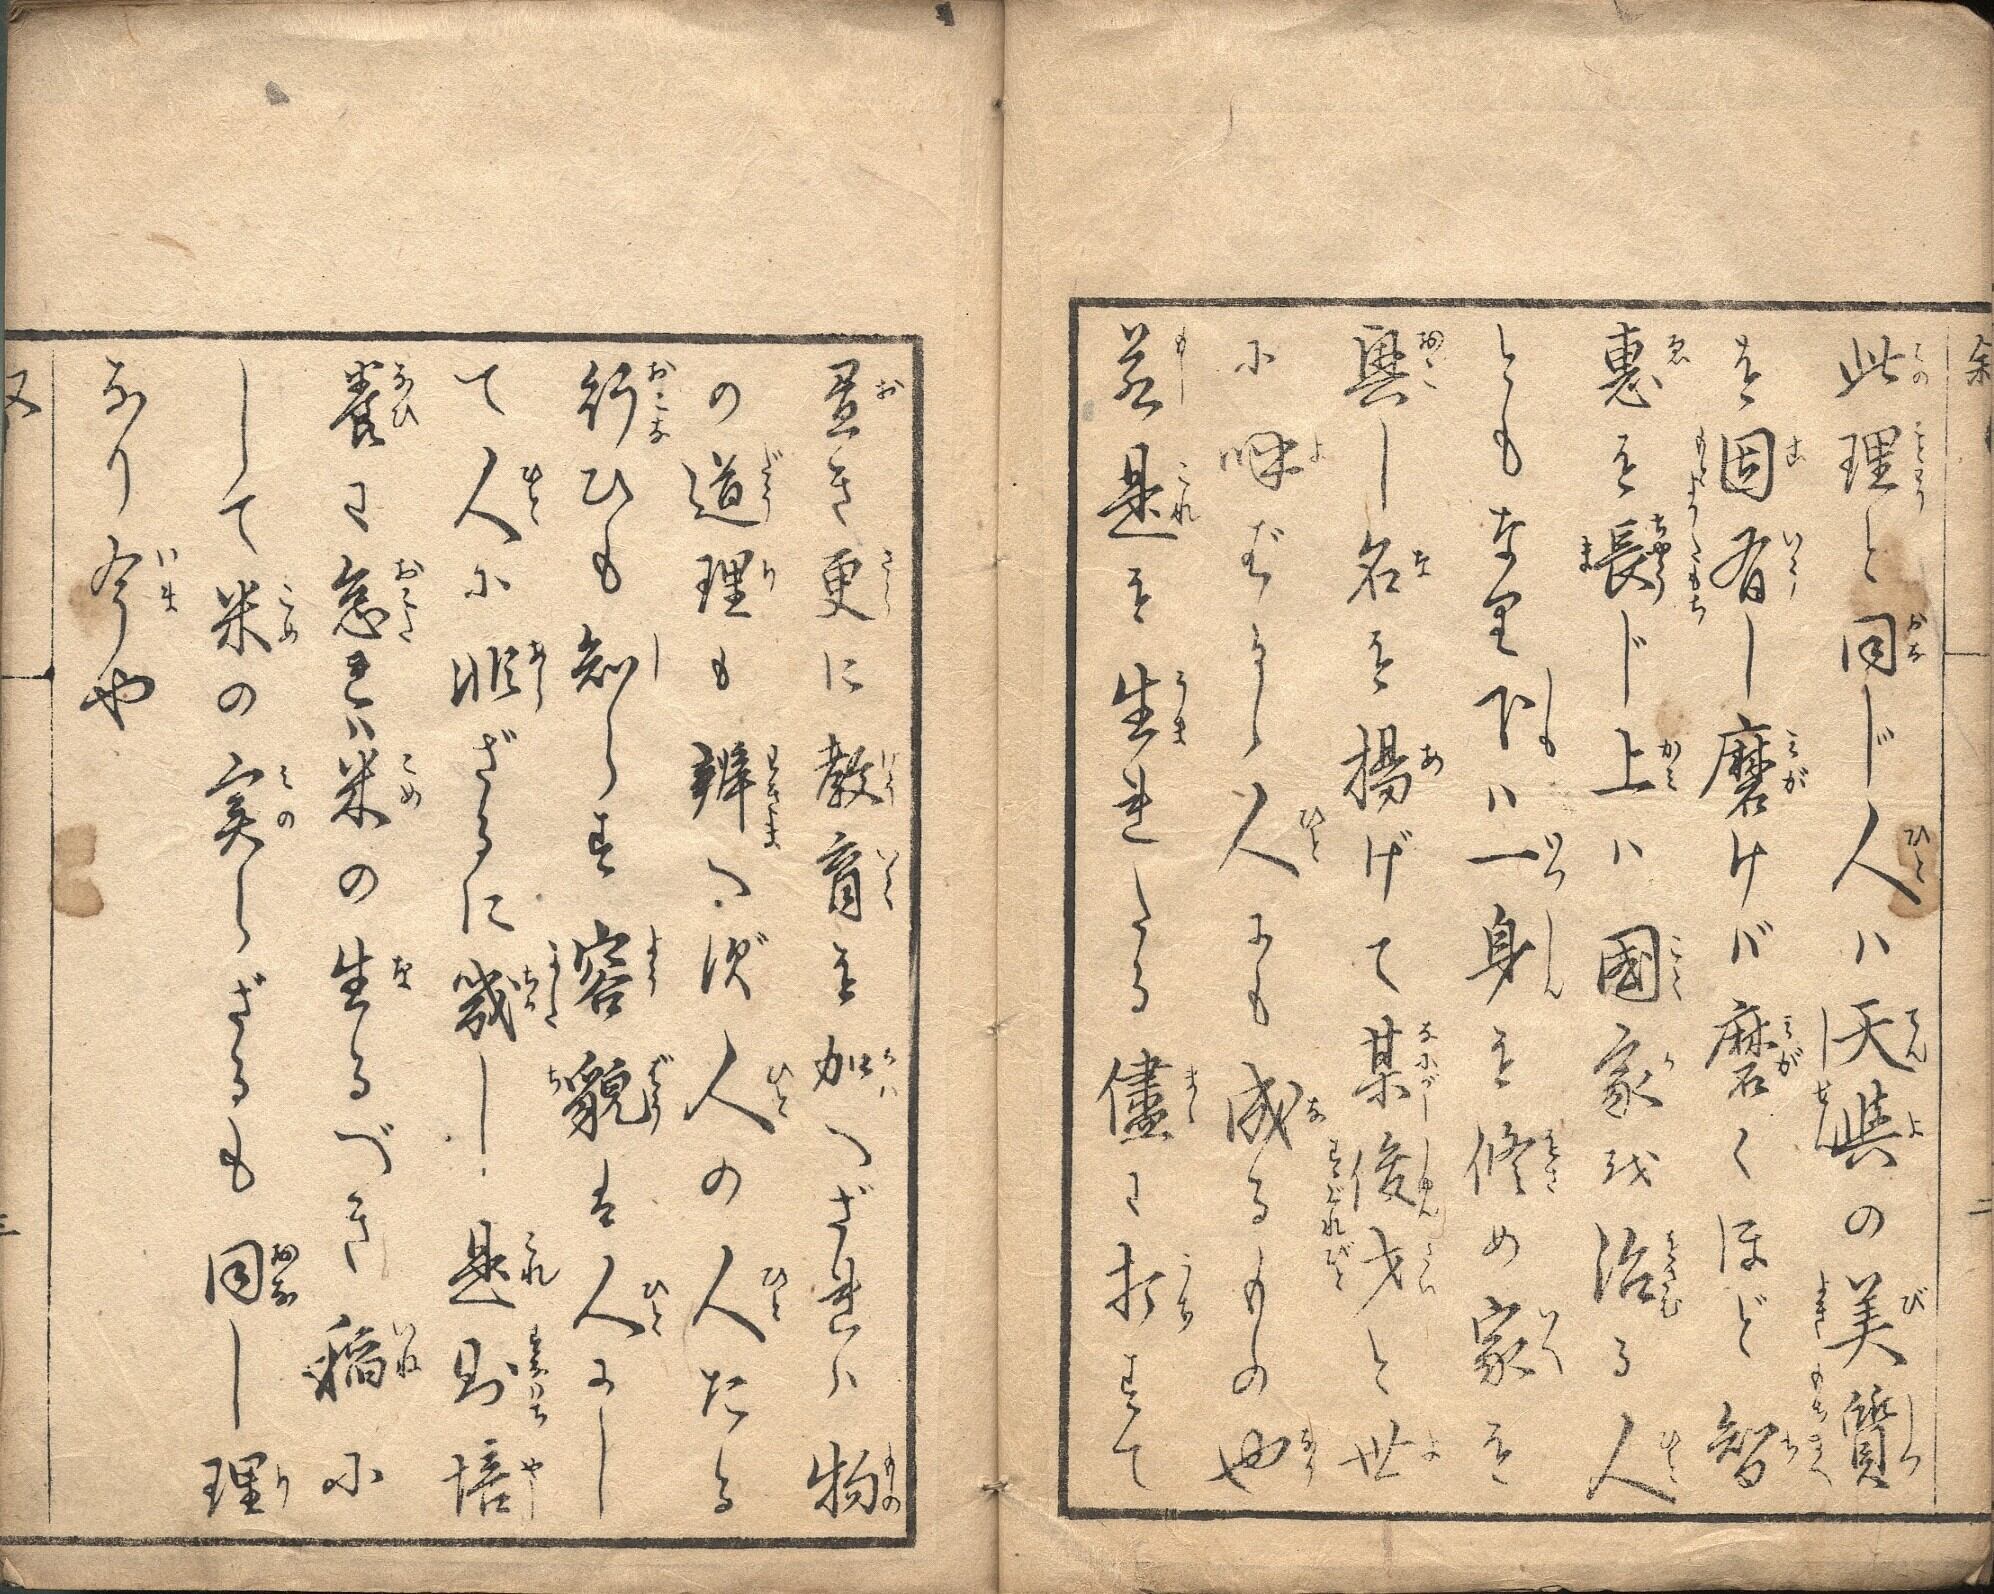 此理と同じ人ハ天與の美質
を固有し磨けバ磨くほど智
恵を長じ上ハ國家を治る人
ともなり下ハ一身を修め家を
興し名を揚げて某俊才と世
に呼ばるゝ人にも成るもの也
若是を生れたる儘に打すて
置き更に教育を加へざれハ物
の道理も辨へず人の人たる
行ひも知らず容貌は人にし
て人に非ざるに幾し是則培
養に怠れハ米の生るべき稲に
して米の実らざるも同し理
なり今や